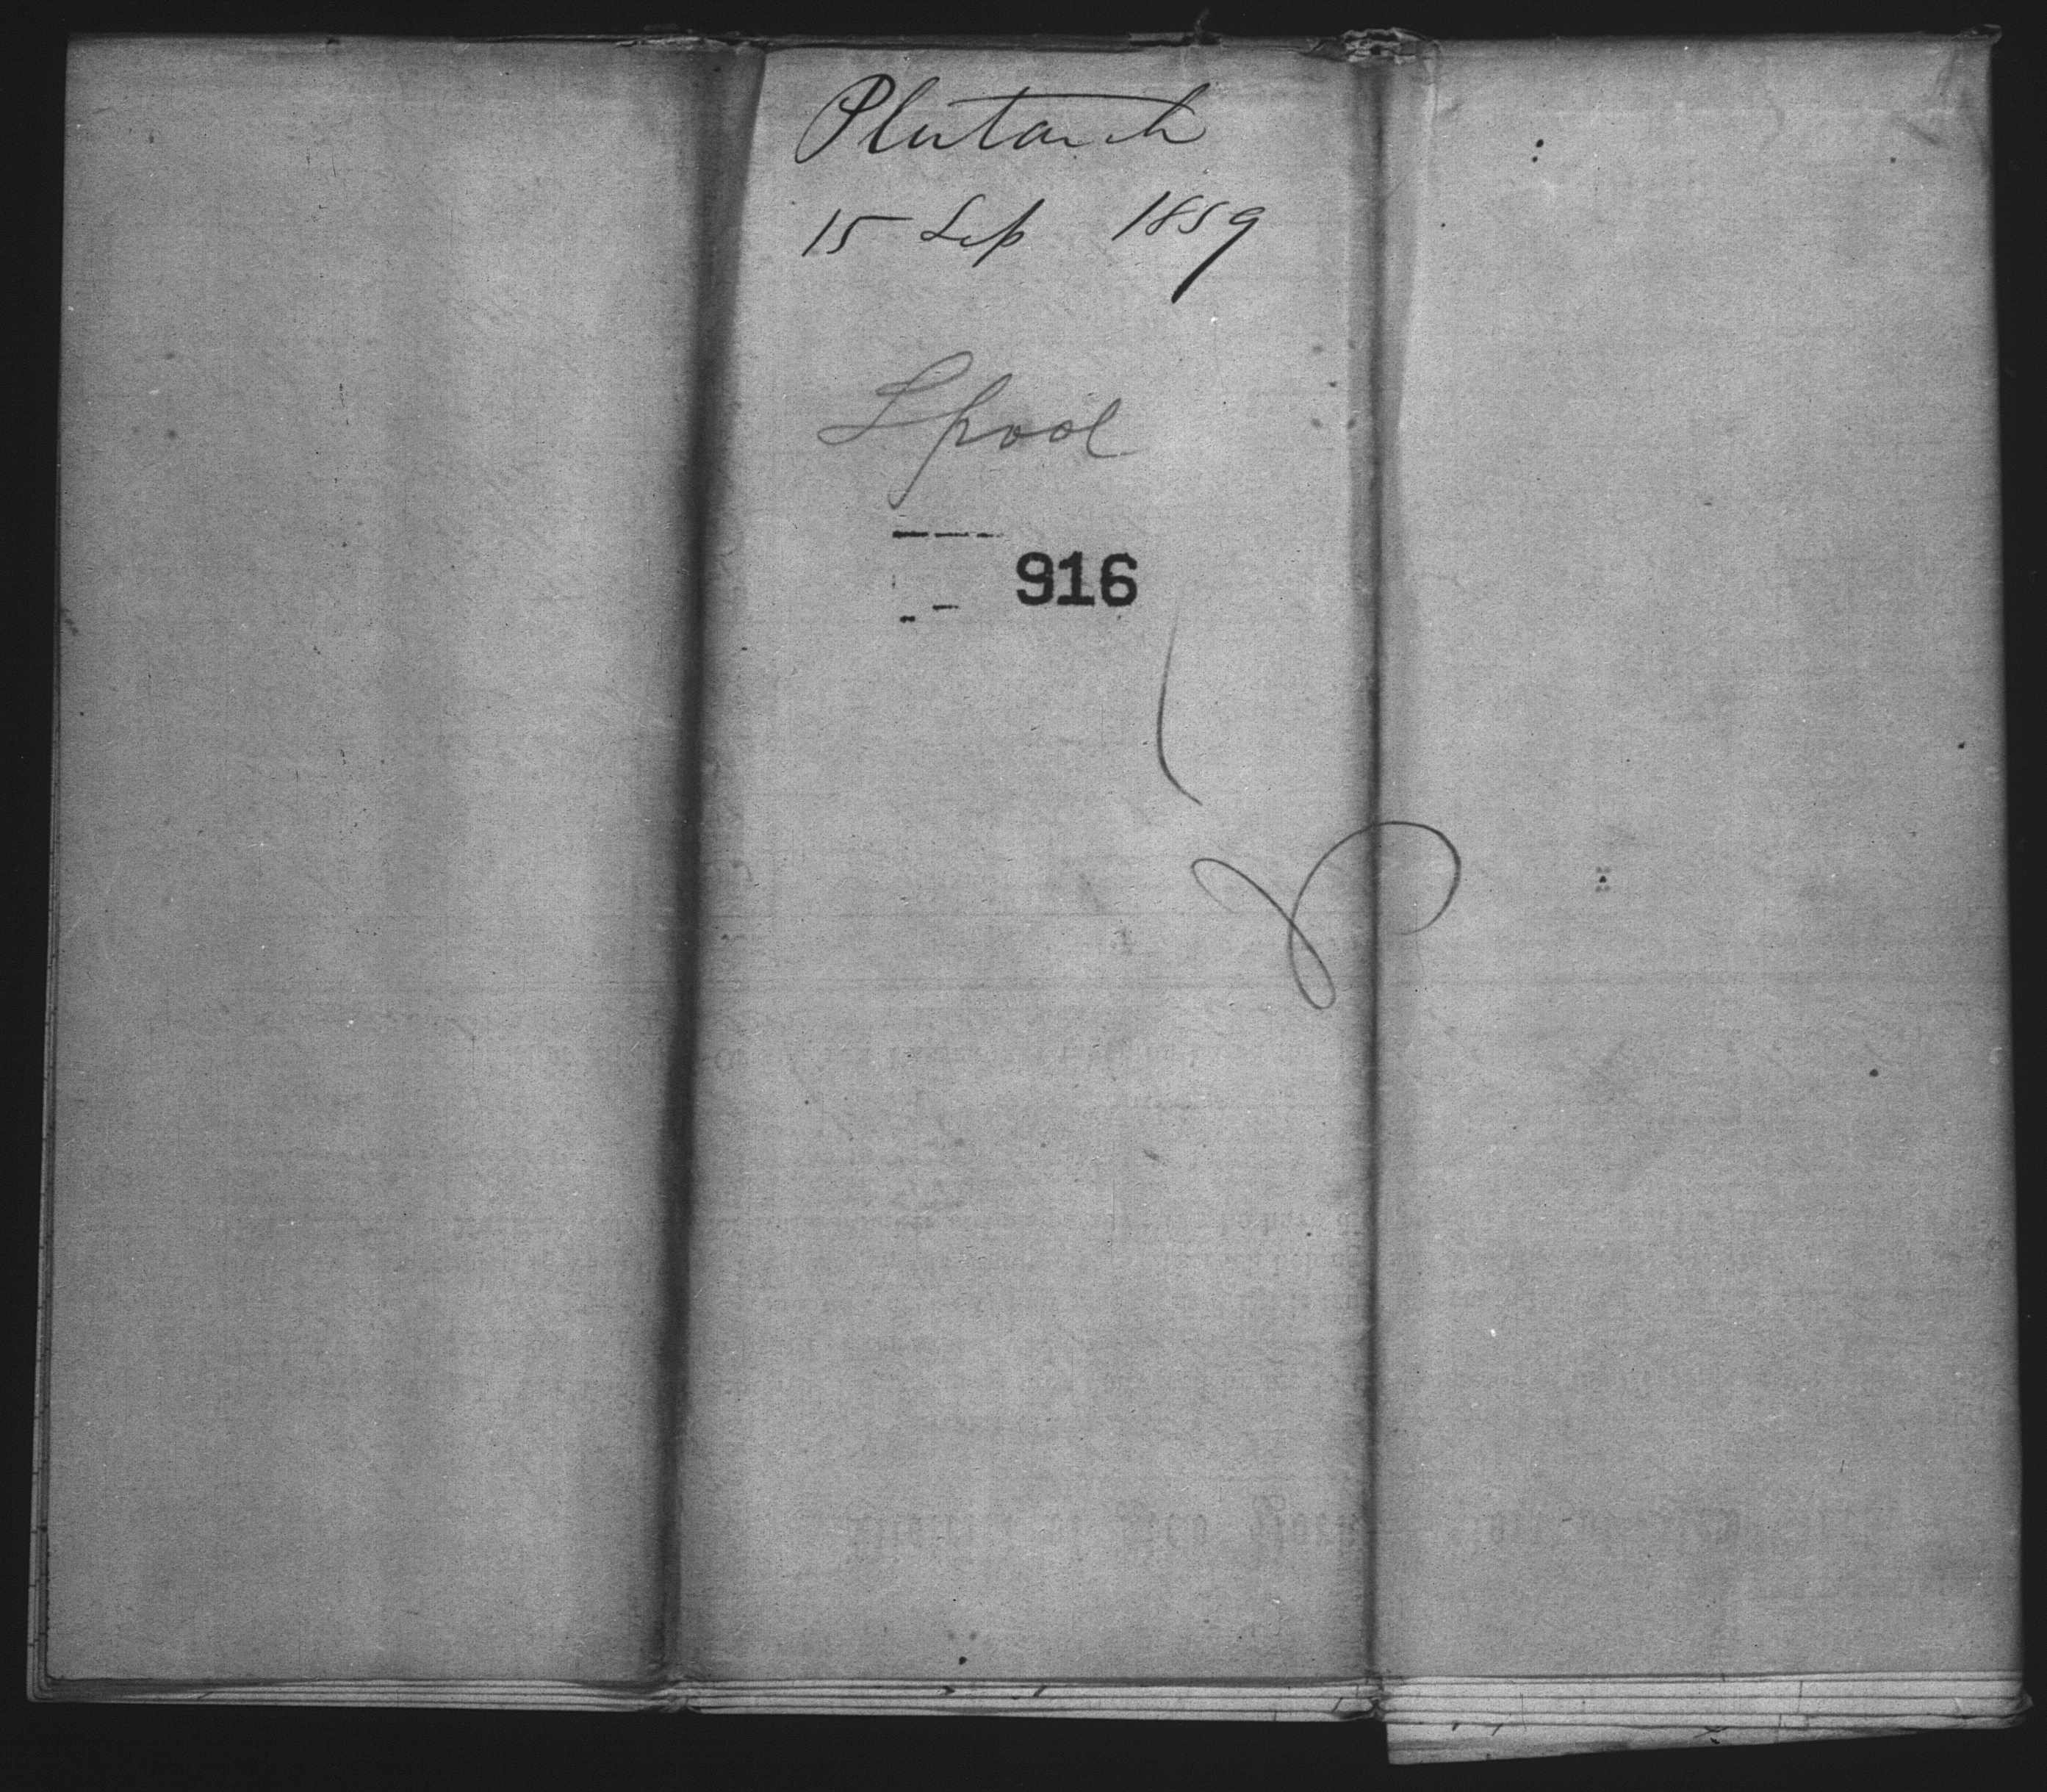 Plutarch
15 Sep 1859
Lpool
916